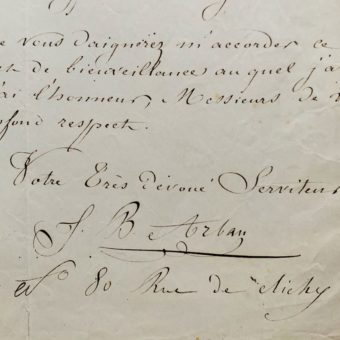 vous daignerez m'accorder ce
de bienveillance auquel j'a
ai l'honneur, Messieurs de
fond respect.
Votre Très dévoué Serviteur
J. B e Arban
N° 80 Rue de Clichy